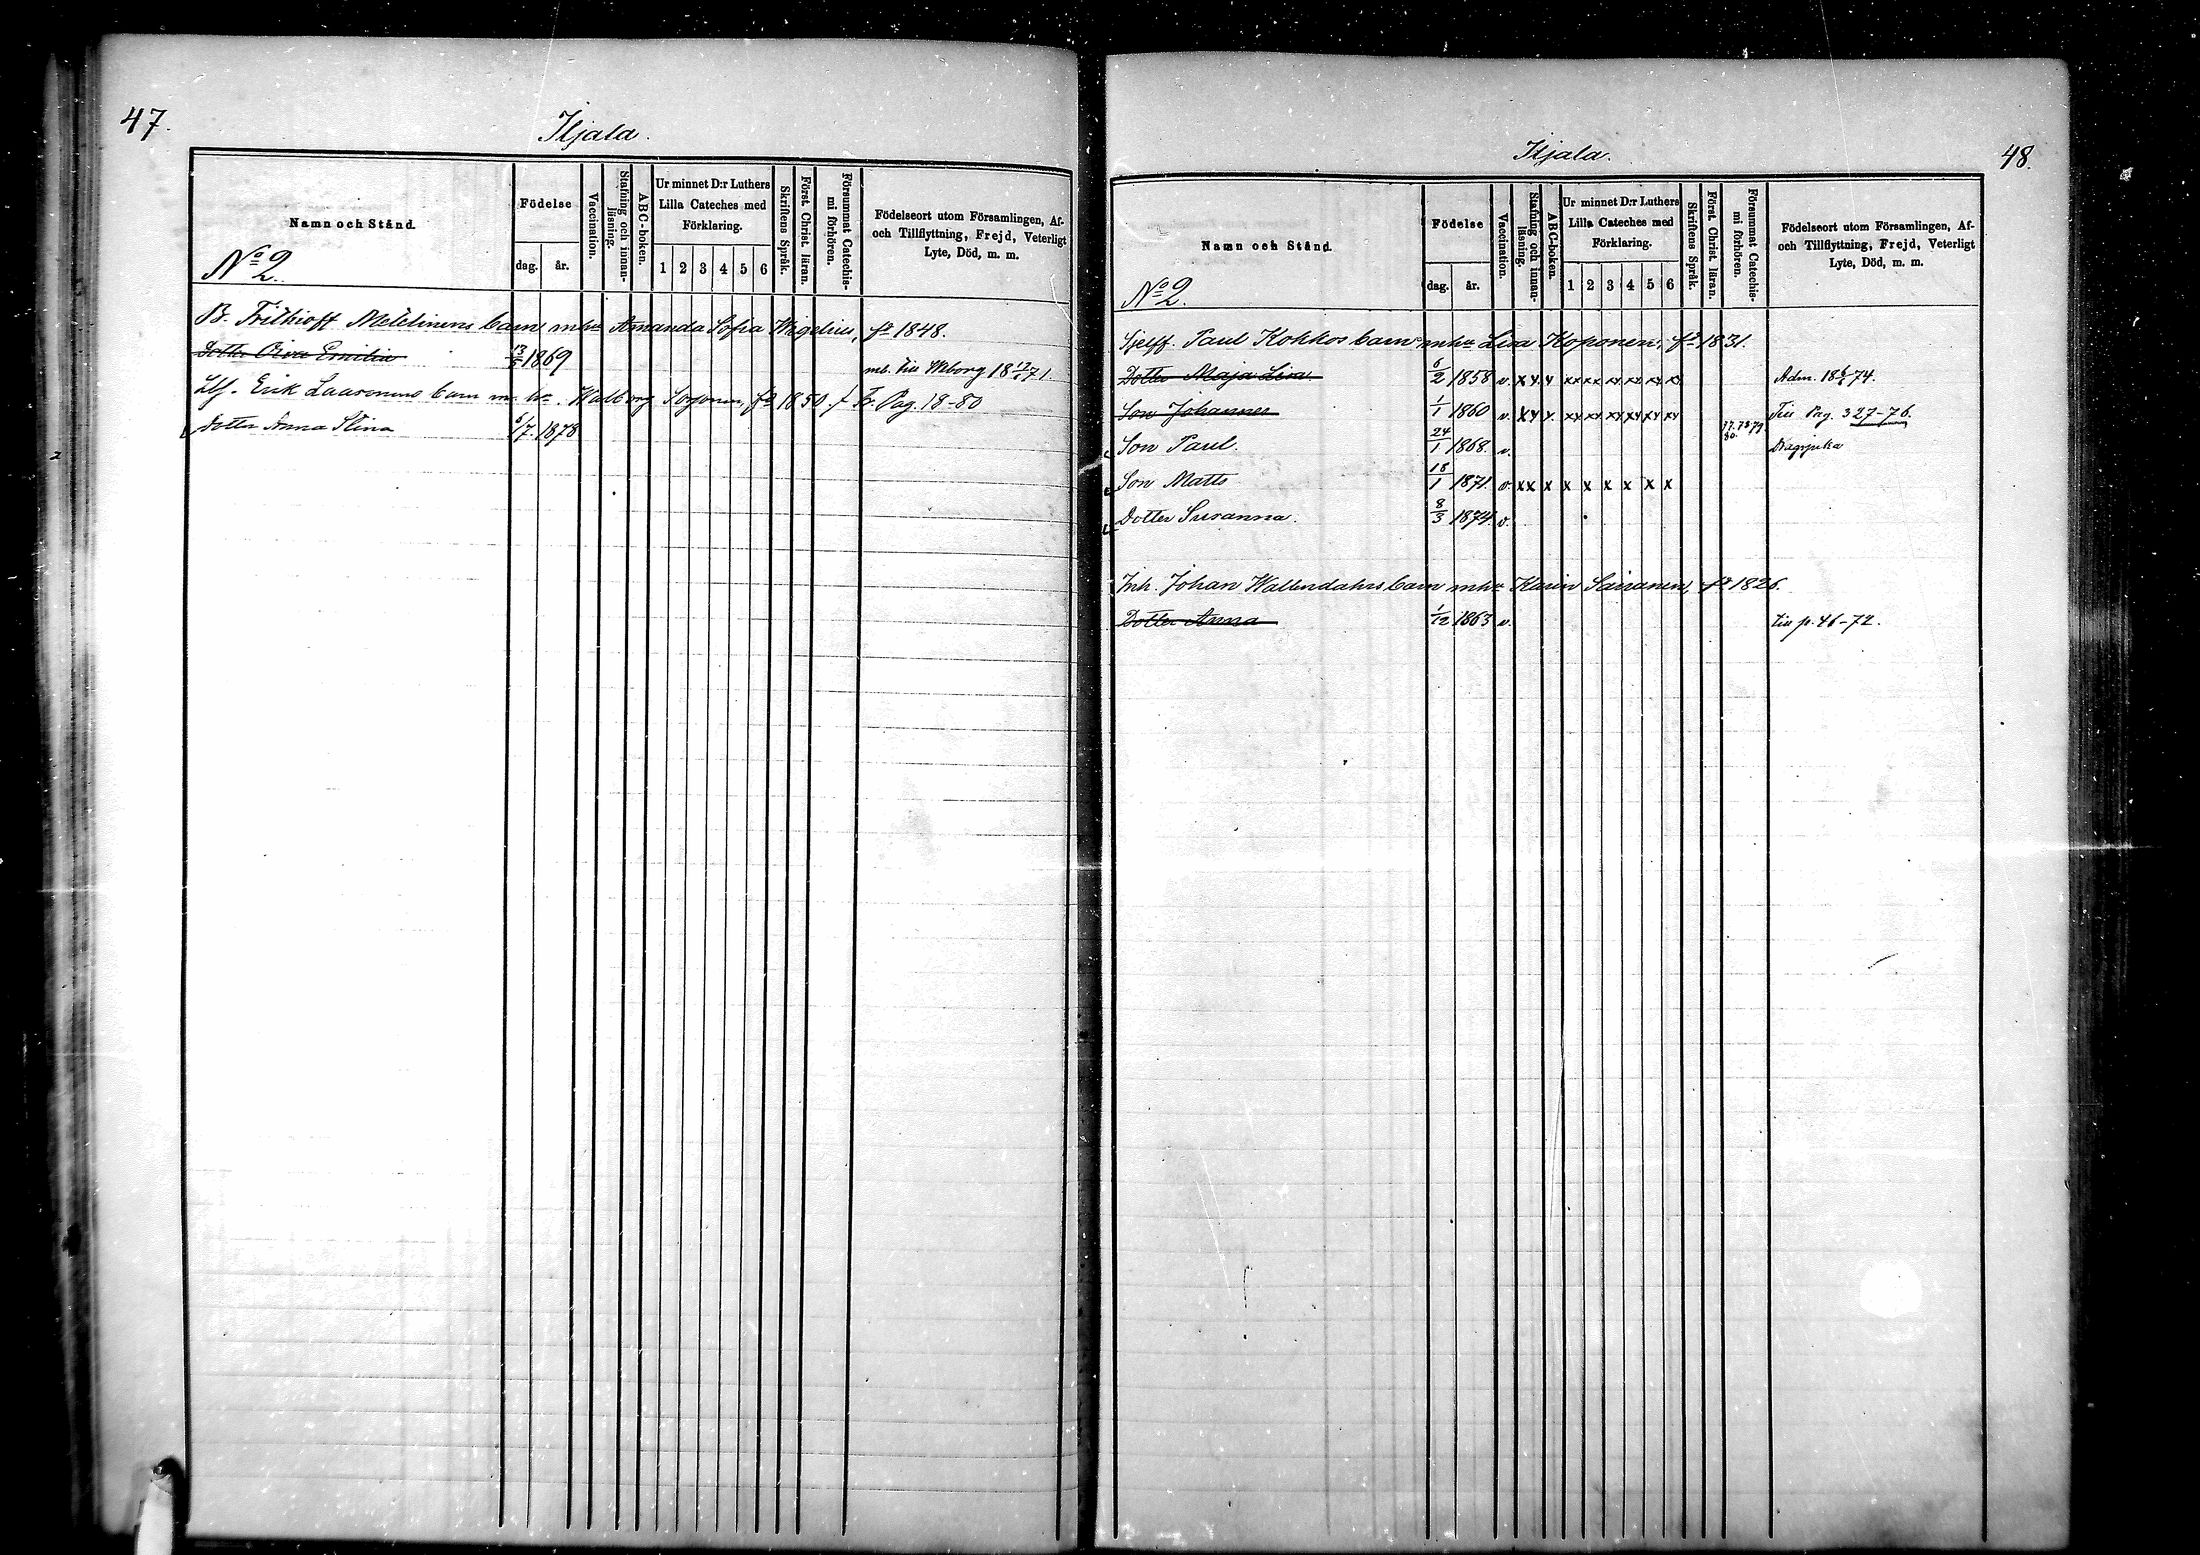 47.
Iljala.
Namn och Stånd.
Födelse
dag. år.
Vaccination.
Stafning och innan-läsning.
ABC-boken.
Ur minnet D:r Luthers
Lilla Cateches med
Förklaring.
1 2 3 4 5 6
Skriftens Språk.
Först. Christ. läran.
Försummat Catechis-mi förhören.
Födelseort utom Församlingen, Af-
och Tillflyttning, Frejd, Veterligt
Lyte, Död, m. m.
No 2.
B. Frithioff barn mhu Amanda Sofia Wigelius, fd 1848.
Dotter Emilia 1869 mb. till Wiborg 18 12/ 71.
Erik Laasonens barn m. hu. Walborg fd 1850. Fr. Pag. 18-80
Dotter Anna Stina 6/7. 1878
48.
Iljala.
Namn och Stånd.
Födelse
dag. år.
Vaccination.
Stafning och innan-läsning.
ABC-boken.
Ur minnet D:r Luthers
Lilla Cateches med
Förklaring.
1 2 3 4 5 6
Skriftens Språk.
Först. Christ. läran.
Försummat Catechis-mi förhören.
Födelseort utom Församlingen, Af-
och Tillflyttning, Frejd, Veterligt
Lyte, Död, m. m.
No 2.
Sjelff. Paul Kokkos barn mhu Lisa Koponen, fd 1831.
Dotter Maja Lisa 6/2 1858 v. Adm. 18 74.
Son Johannes 1/1 1860 v. Till Pag. 327-76.
Son Paul. 24/1 1868. v. 77. 78 79 80.
Son Matts 18/1 1871. v. x x x x x x x x x
Dotter Susanna. 8/3 1874. v.
Inh. Johan Wallendahrs barn mhu Karin Sairanen, fd 1826.
Dotter Anna 1/12 1863 v. till p. 46-72.